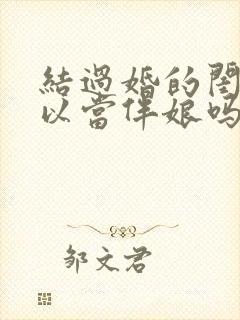 結過婚的閨
以當伴娘嗎
邹文君